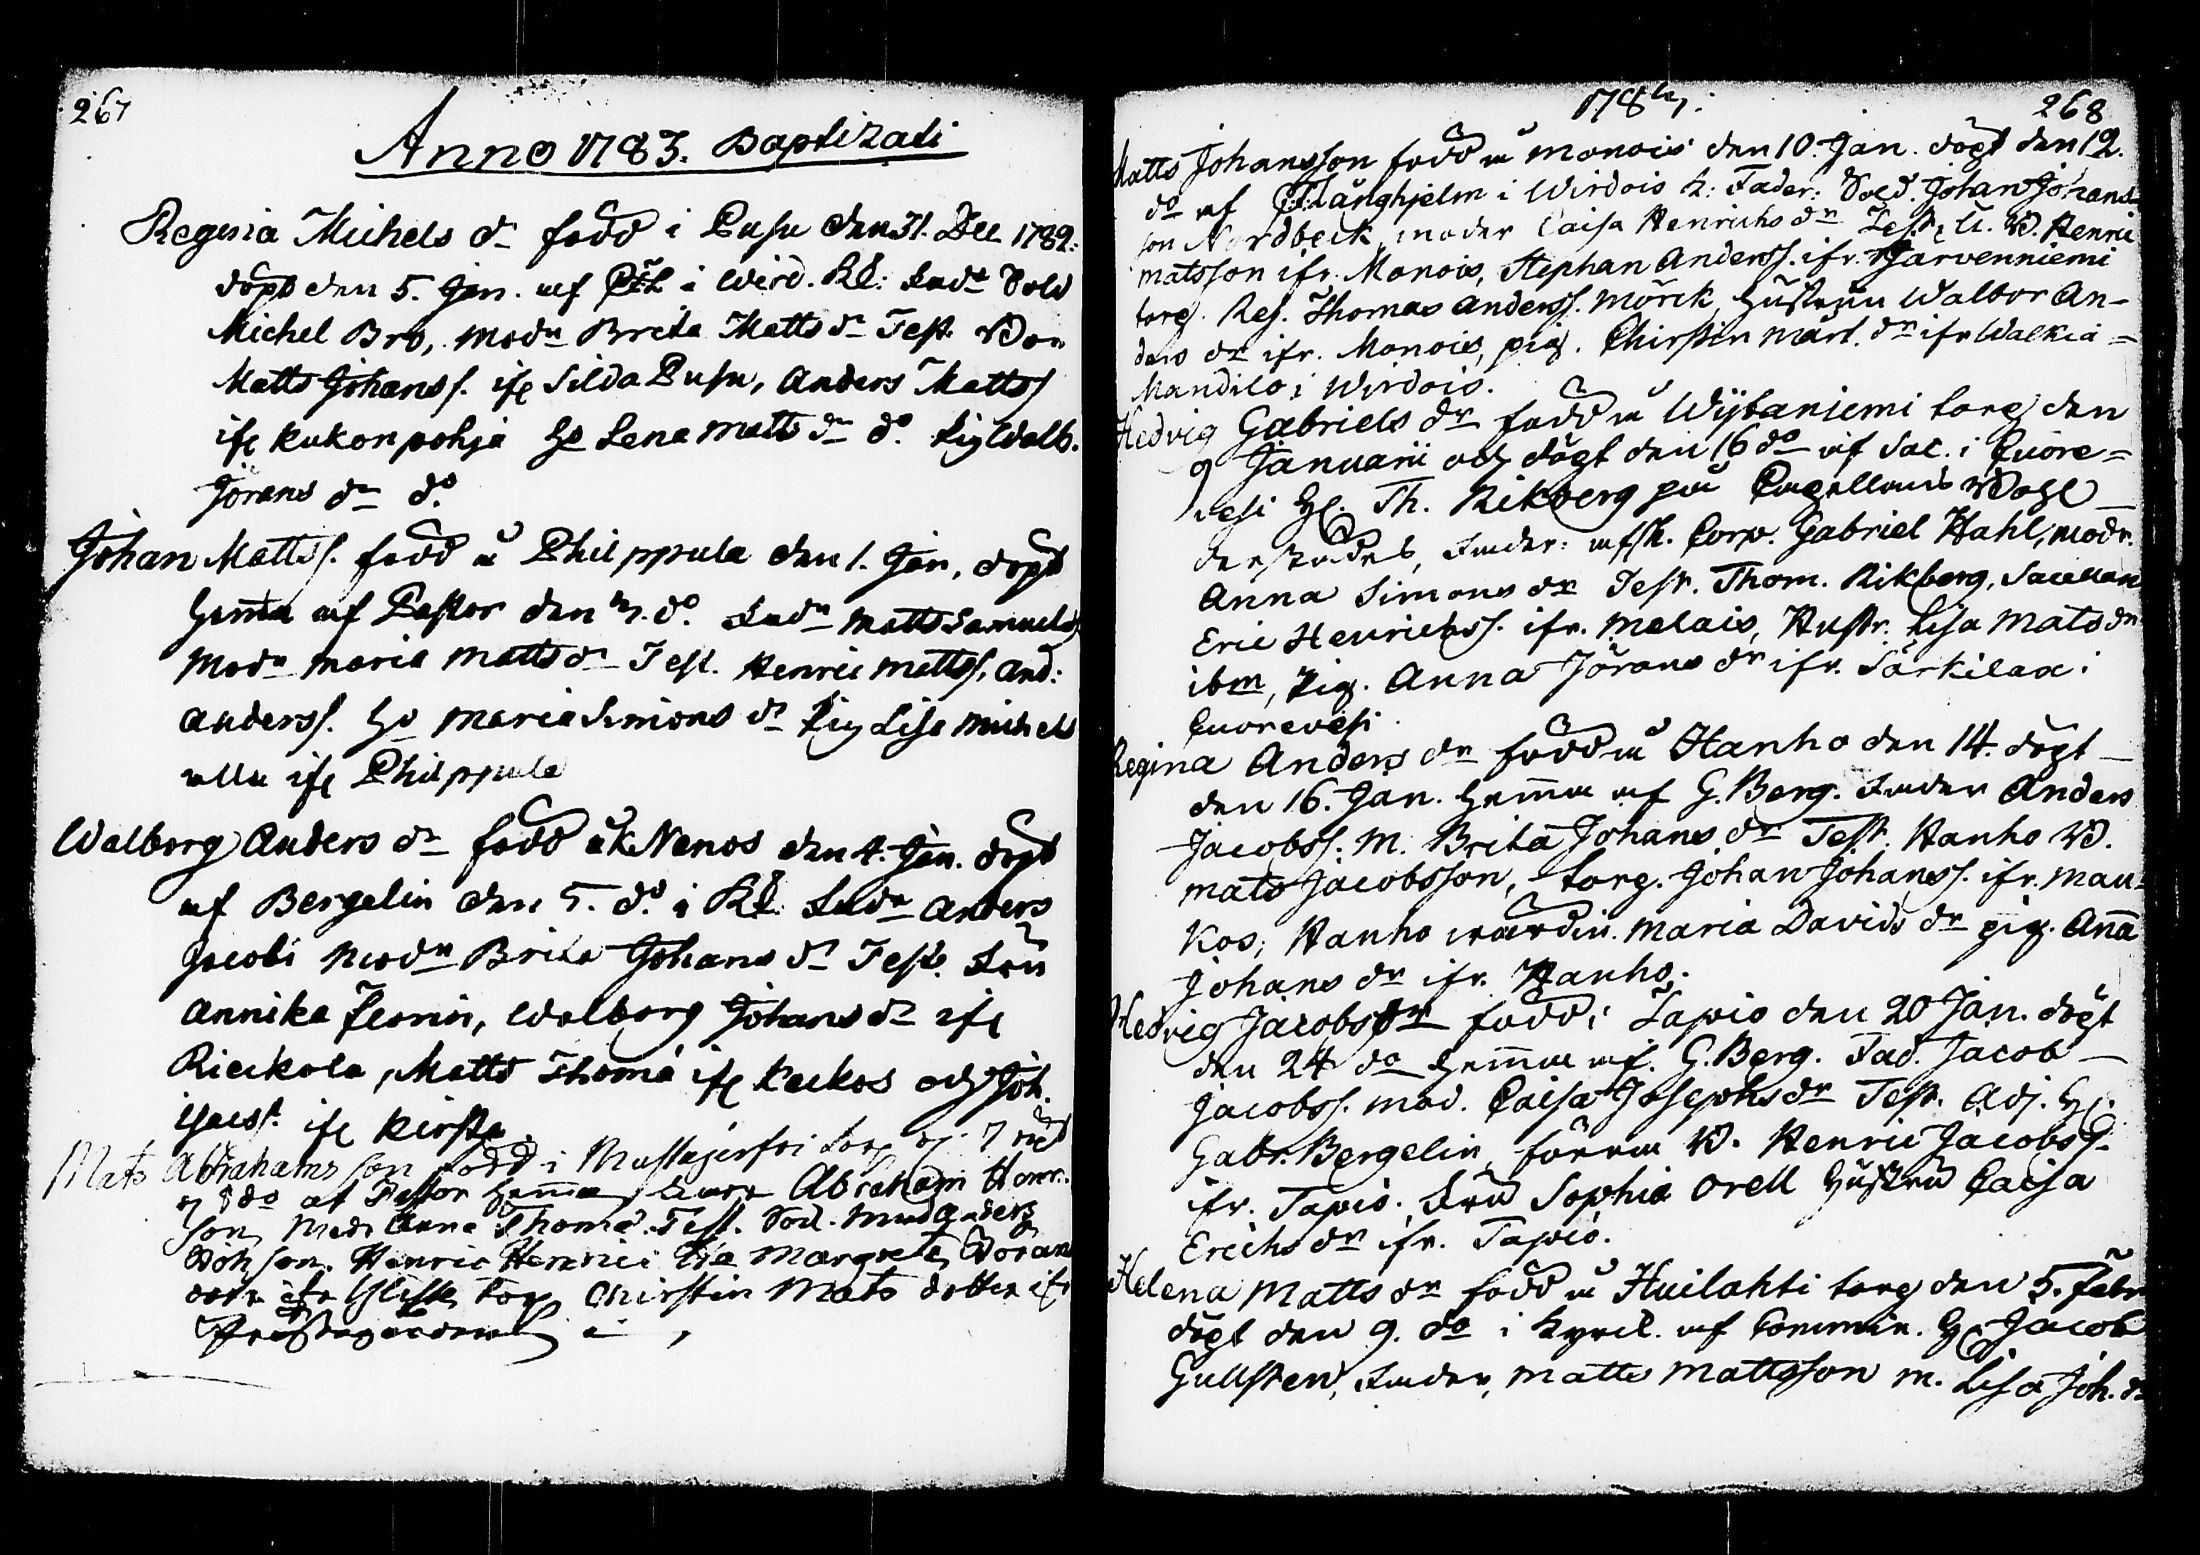 267
Anno 1783. Baptizati
Regina Michels dr född i Pusu den 31. Dec 1782:
döpt den 5. Jan. af i Wird. Kk: Fadr Sold
Michel Bro, Modr Brita Matts dr Test.
Matts Johanss. ifr Silda Pusu, Anders Matts
ifr Kukonpohja Ho Lena Matts dr do. Pig Walb.
Jörans dr do.
Johan Mattss. född å Philppula den 1. Jan, döpt
hemma af Pastor den 3. do. Fadr Matts Samuels
Modr Maria Matts dr Test. Henric Mattss, And:
Anderss. Ho Maria Simons dr Pig Lisa Michels
alla ifr Philppula
Walborg Anders dr född å Nenos den 4. Jan. döpt
af Bergelin den 5. do. i Kk: Fadr Anders
Jacobi Modr Brita Johans dr Test. Fru
Annika Walborg Johans dr ifr
Rieckola, Matts Thomæ ifr Keckos och Joh.
ifr
Mats Abrahamsson född i torp 7
do af Pastor hemma, Abraham Henr.
son, Modr Anna Thomæ. Test. Sod. Anders
Henric Henrici Margreta Göran
dotr ifr torp Chirstin Mats dotter ifr
1783:
268
Matts Johansson född å Monois den 10. Jan. döpt den 12.
do af Stånghjelm i Wirdois k: Fader: Sold. Johan Johans-
son Nordbeck, moder Caisa Henrichs dr Test. W. Henric
Matsson ifr. Monois, Stephan Anderss. ifr. Jarvenniemi
torp. Res. Thomas Anderss. Mörck, hustrun Walbor An-
ders dr ifr. Monois, pig. Chirstin Märt. dr ifr Walkia=
Mandilo i Wirdois.
Hedvig Gabriels dr född å Wijtaniemi torp den
9 Januarii och döpt den 16 do af Sac. i Cuore=
vesi Hr. Th. Rikberg på Capellans Wohl
Fader: afsk. Corp. Gabriel Hahl, modr.
Anna Simons dr Test. Thom. Rikberg, Sacellan
Eric Henrichss. ifr. Melais, Hustr. Lisa Mats dr
ibm, Pig. Anna Jörans dr ifr. Särkilax i
Cuorevesi.
Regina Anders dr född å Hanho den 14. döpt
den 16. Jan. hemma af G. Berg. Fader Anders
Jacobss. M. Brita Johans dr Test. Hanho W.
Mats Jacobsson, torp. Johan Johanss. ifr. Mau=
kos, Hanho wärdin. Maria Davids dr pig. Anna
Johans dr ifr. Hanho.
Hedvig Jacobs dr född i Tapio den 20 Jan. döpt
den 24 do hemma af. G. Berg. Fad. Jacob
Jacobss. mod. Caisa Josephs dr Test. Adj. Hr.
Gabr. Bergelin, förra W. Henric Jacobss.
ifr. Tapio. Fru Sophia Orell hustru Caisa
Erichs dr ifr. Tapio.
Helena Matts dr född å Huilahti torp den 5. Febr
döpt den 9. do i kyrck. af Commin. Hr. Jacob
Gullsten, Fader, Matts Mattsson m. Lisa Joh. dr